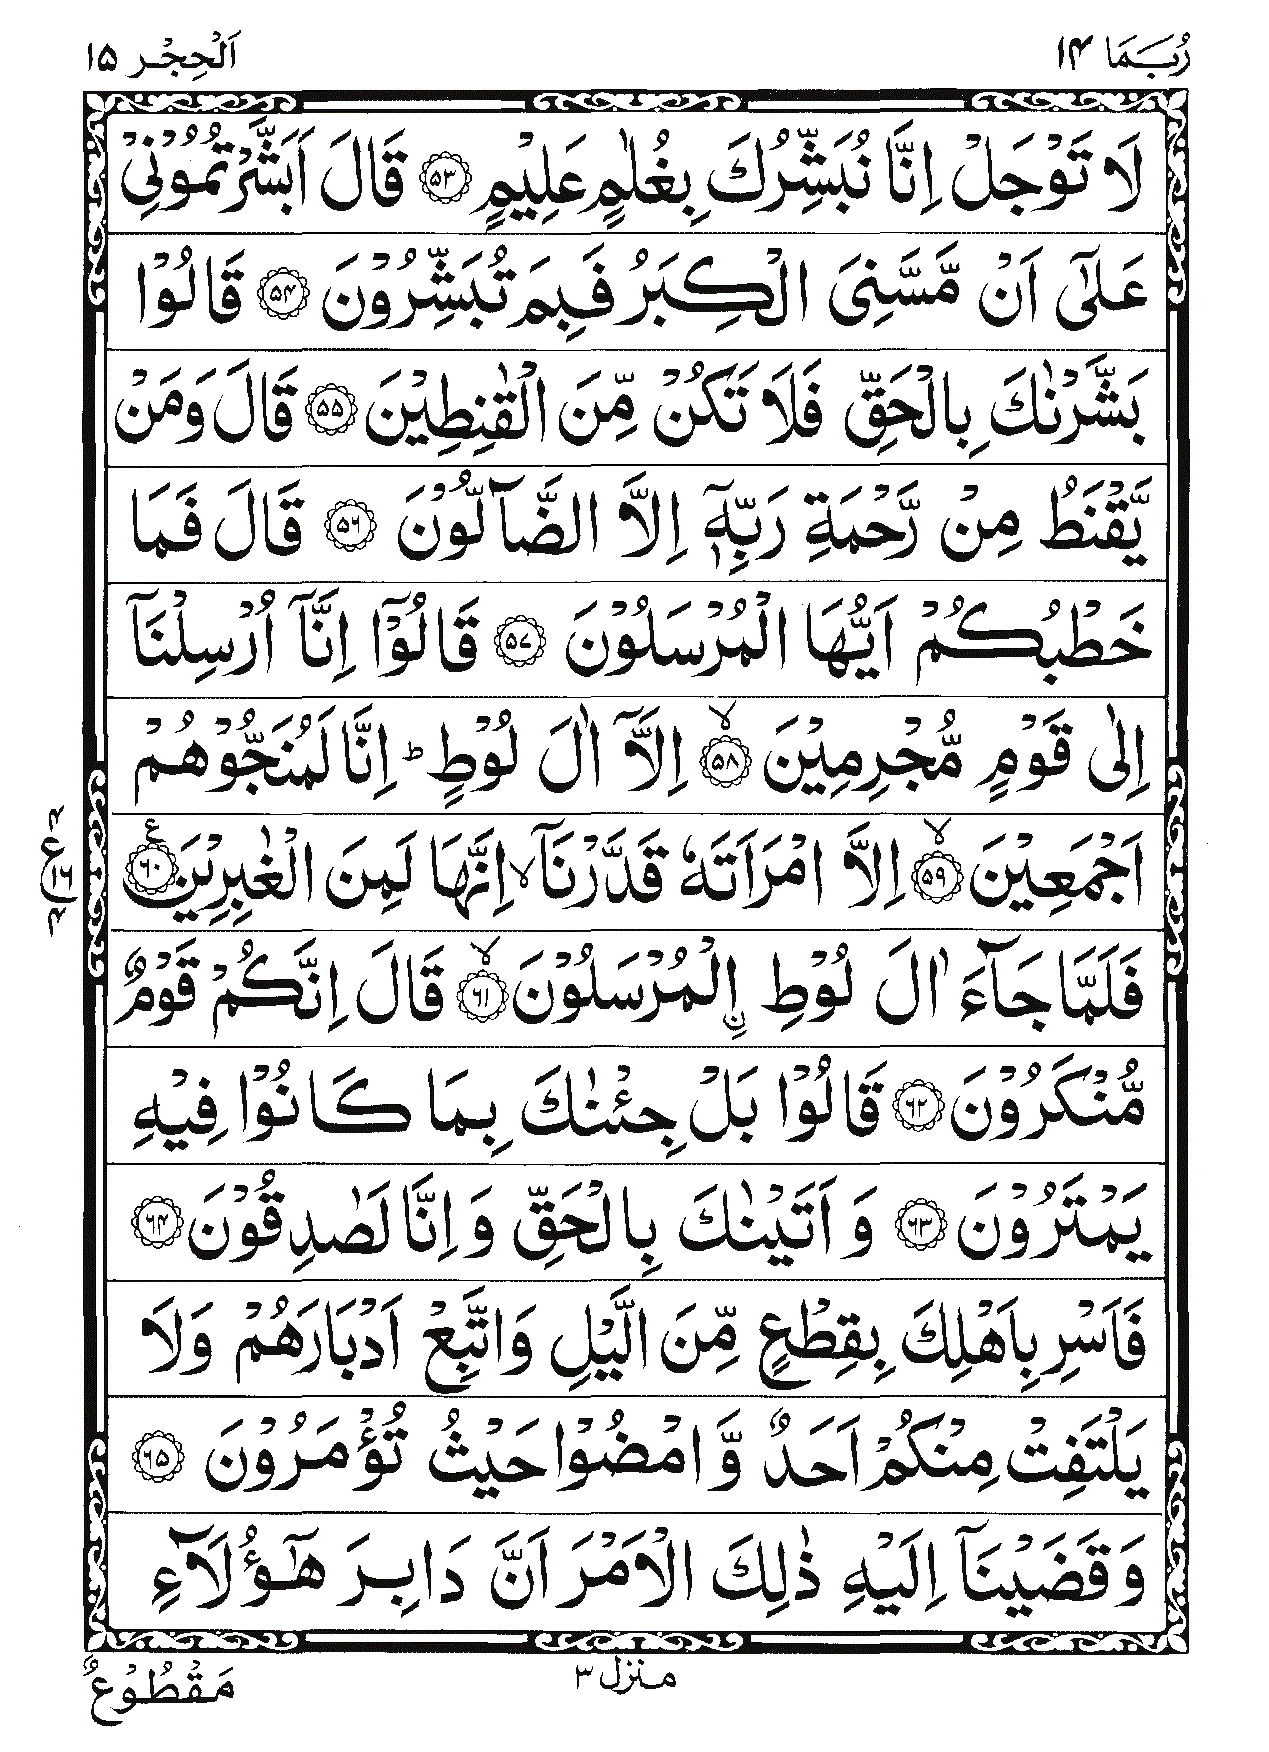 رُبَمَا ۱۴
اَلْحِجْر ۱۵
لَا تَوْجَلْ اِنَّا نُبَشِّرُكَ بِغُلٰمٍ عَلِیْمٍ ۵۳ قَالَ اَبَشَّرْتُمُوْنِیْ
عَلٰۤی اَنْ مَّسَّنِیَ الْكِبَرُ فَبِمَ تُبَشِّرُوْنَ ۵۴ قَالُوْا
بَشَّرْنٰكَ بِالْحَقِّ فَلَا تَكُنْ مِّنَ الْقٰنِطِیْنَ ۵۵ قَالَ وَمَنْ
یَّقْنَطُ مِنْ رَّحْمَةِ رَبِّهٖۤ اِلَّا الضَّآلُّوْنَ ۵۶ قَالَ فَمَا
خَطْبُكُمْ اَیُّهَا الْمُرْسَلُوْنَ ۵۷ قَالُوْۤا اِنَّاۤ اُرْسِلْنَاۤ
اِلٰی قَوْمٍ مُّجْرِمِیْنَ ۵۸ ۙ اِلَّاۤ اٰلَ لُوْطٍ ؕ اِنَّا لَمُنَجُّوْهُمْ
اَجْمَعِیْنَ ۵۹ ۙ اِلَّا امْرَاَتَهٗ قَدَّرْنَاۤ ۙ اِنَّهَا لَمِنَ الْغٰبِرِیْنَ ۶۰ ع
۴ ع ۱۶ ۴
فَلَمَّا جَآءَ اٰلَ لُوْطِ ِ۟الْمُرْسَلُوْنَ ۶۱ ۙ قَالَ اِنَّكُمْ قَوْمٌ
مُّنْكَرُوْنَ ۶۲ قَالُوْا بَلْ جِئْنٰكَ بِمَا كَانُوْا فِیْهِ
یَمْتَرُوْنَ ۶۳ وَ اَتَیْنٰكَ بِالْحَقِّ وَ اِنَّا لَصٰدِقُوْنَ ۶۴
فَاَسْرِ بِاَهْلِكَ بِقِطْعٍ مِّنَ الَّیْلِ وَاتَّبِعْ اَدْبَارَهُمْ وَلَا
یَلْتَفِتْ مِنْكُمْ اَحَدٌ وَّ امْضُوْا حَیْثُ تُؤْمَرُوْنَ ۶۵
وَ قَضَیْنَاۤ اِلَیْهِ ذٰلِكَ الْاَمْرَ اَنَّ دَابِرَ هٰۤؤُلَآءِ
منزل ۳
مَقْطُوْعٌ